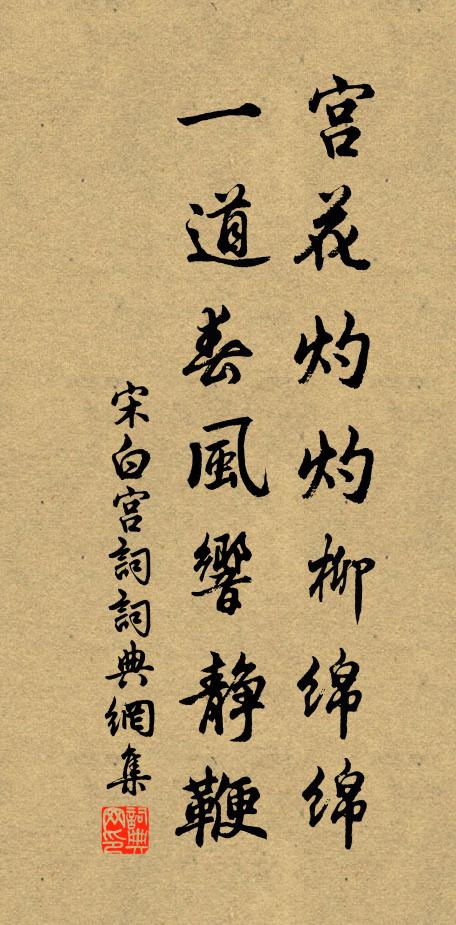 宮花灼灼柳綿綿
一道春風響静鞭
宋白宮詞詞典網集
詞典网印